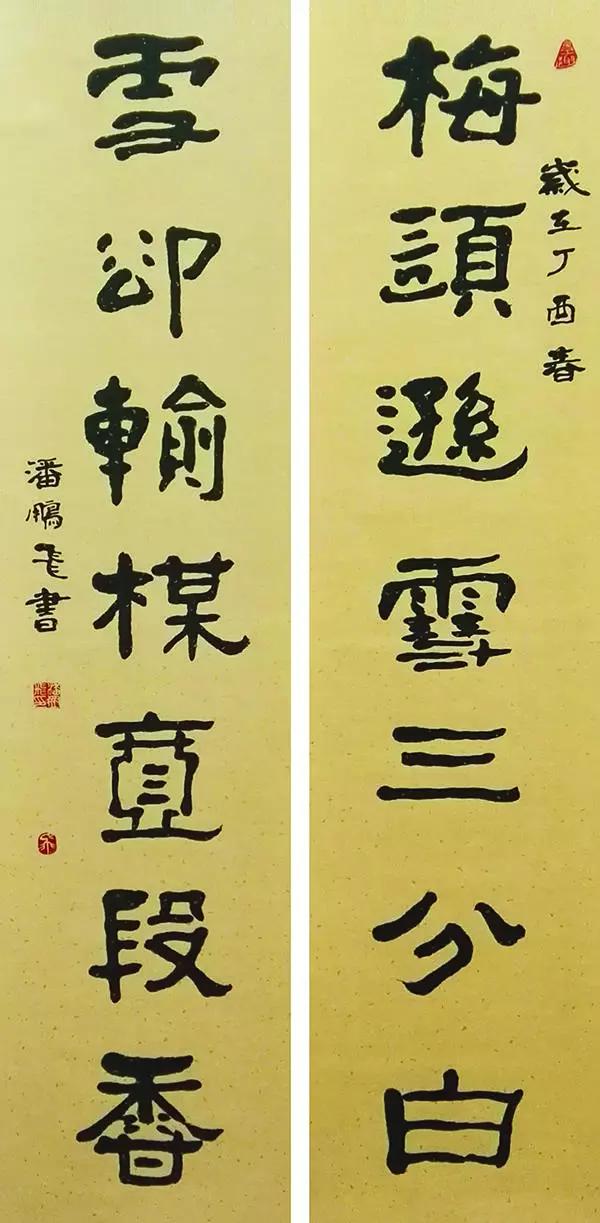 歲在丁酉春
梅須遜雪三分白
雪卻輸楳壹段香
潘鵬飛書